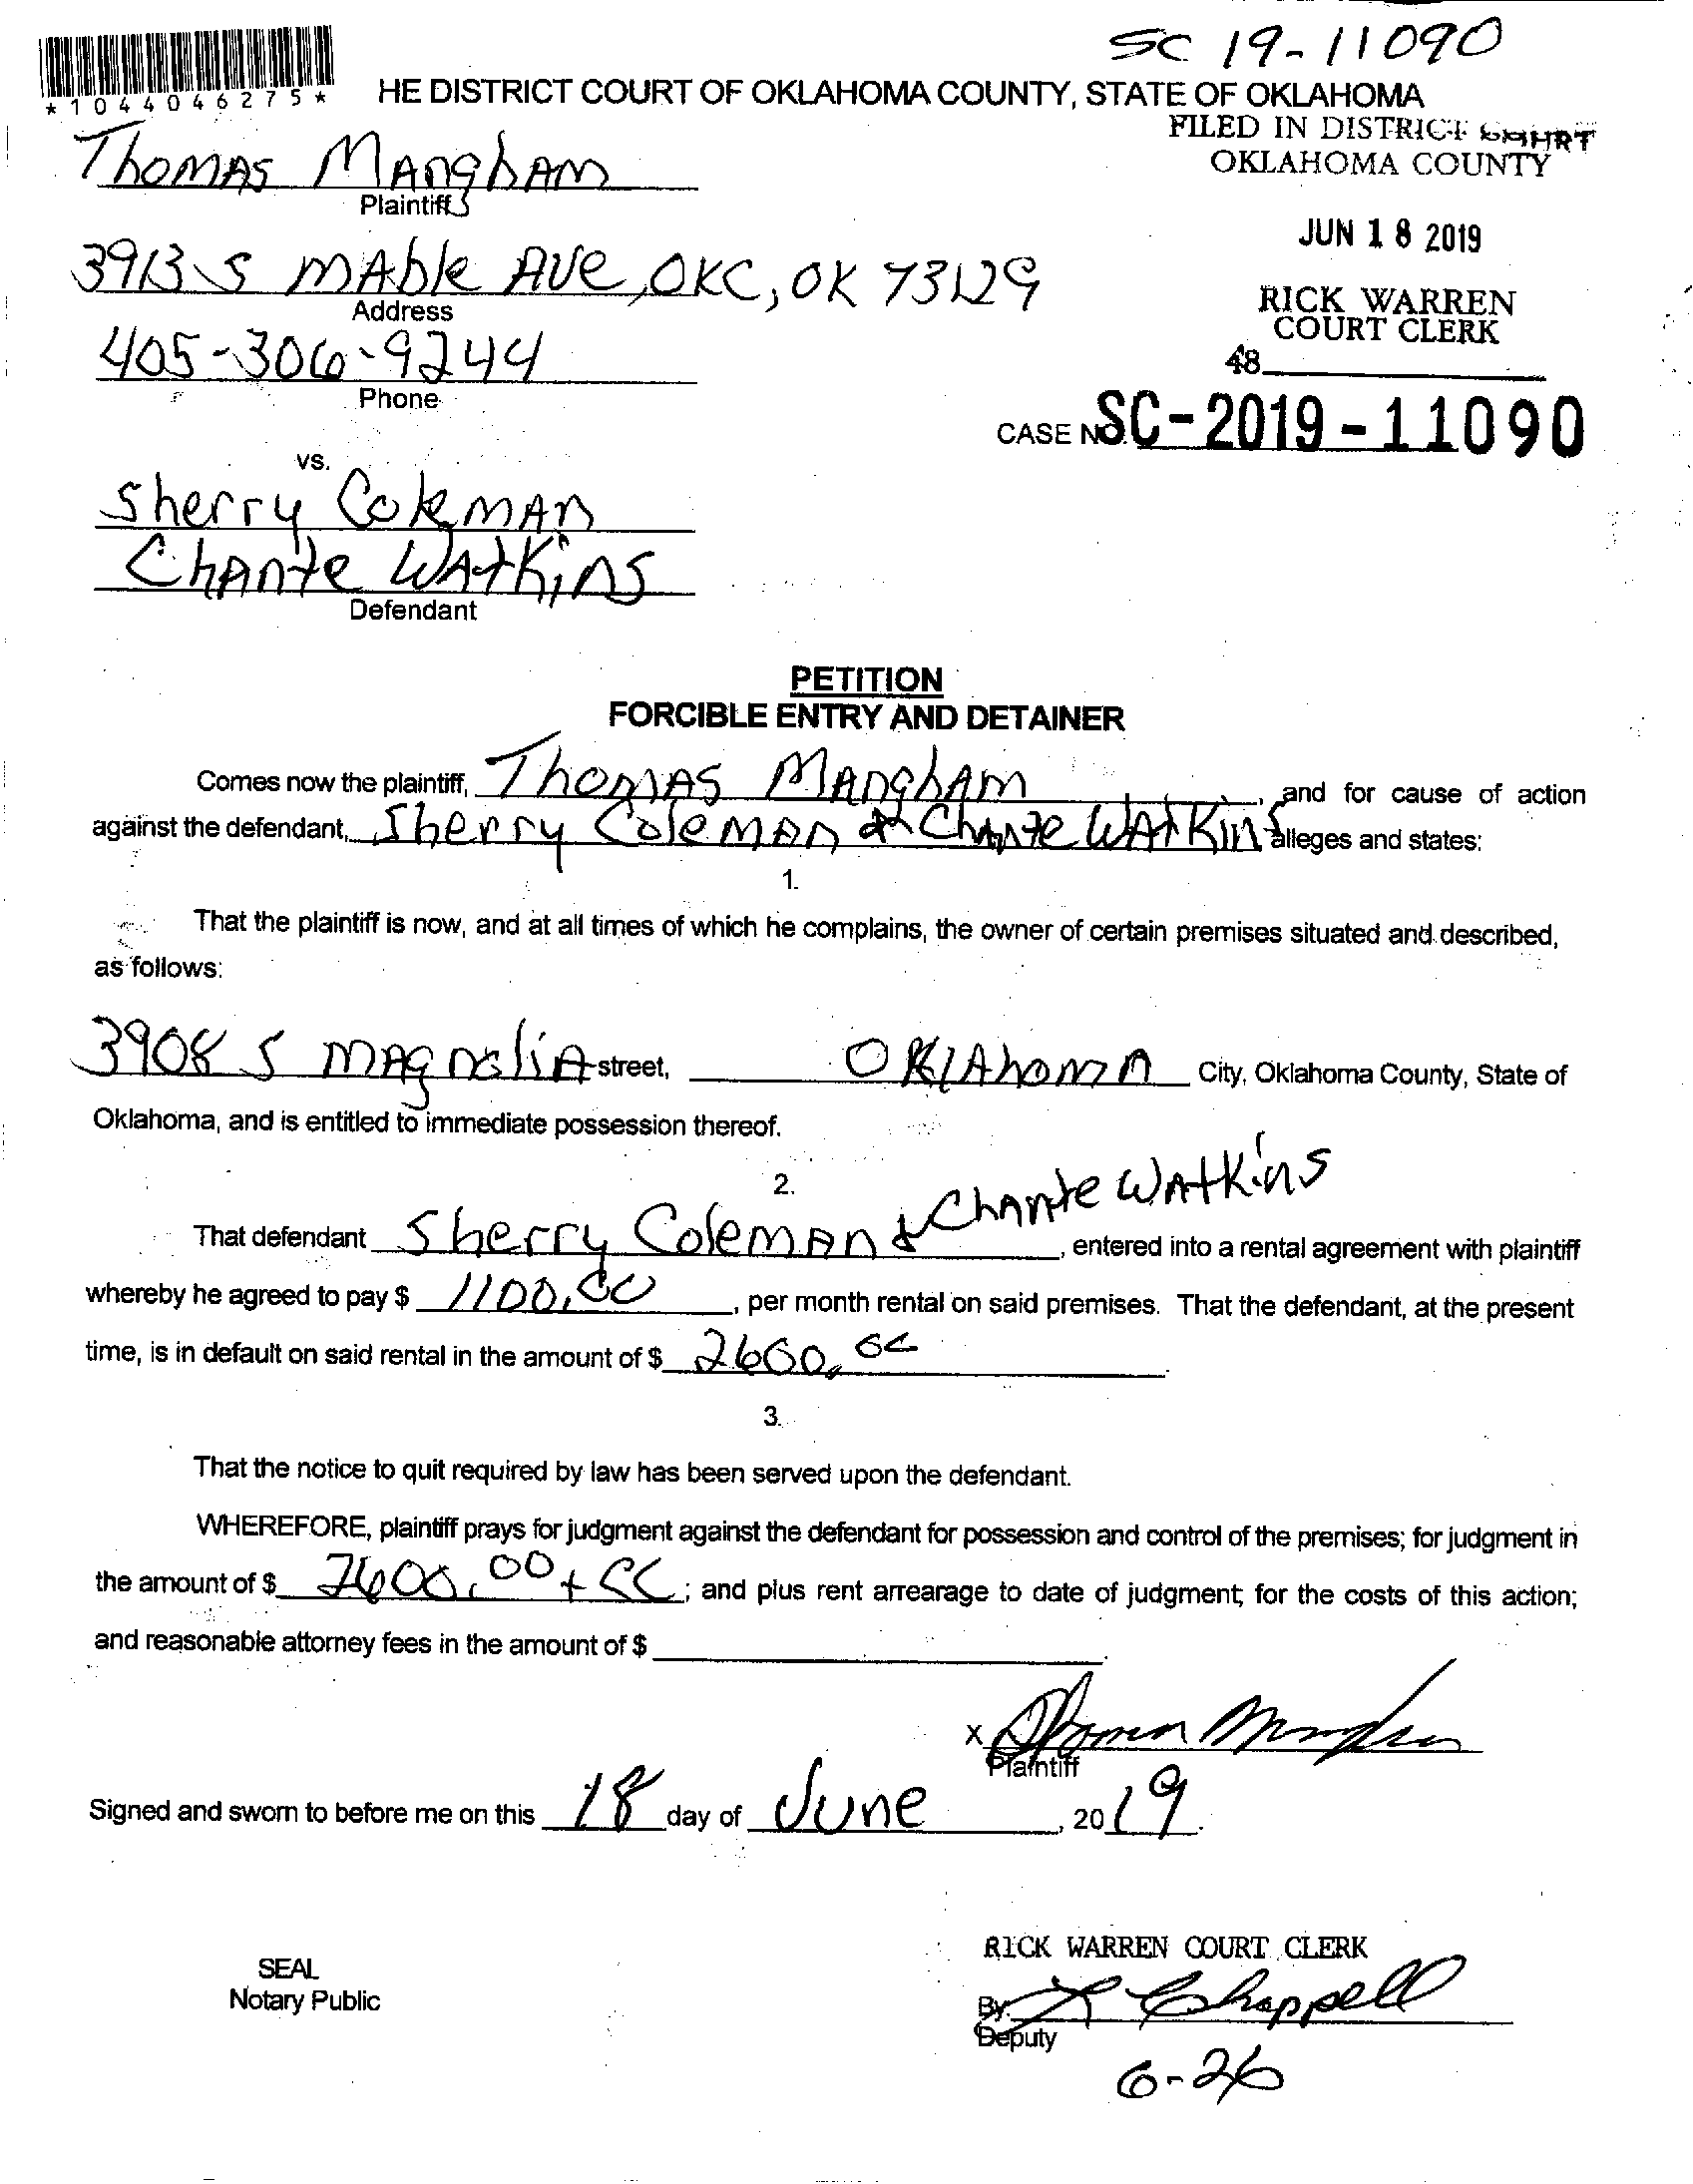 SC 19-11090
*1044046275*
HE DISTRICT COURT OF OKLAHOMA COUNTY, STATE OF OKLAHOMA
FILED IN DISTRICT COURT
OKLAHOMA COUNTY
Thomas Mangham
Plaintiff
JUN 18 2019
3913 S Mable Ave, OKC, OK 73129
Address
RICK WARREN
COURT CLERK
405-306-9244
Phone
48
CASE NO. SC-2019-11090
vs.
Sherry Coleman
Chante Watkins
Defendant
PETITION
FORCIBLE ENTRY AND DETAINER
Comes now the plaintiff, Thomas Mangham, and for cause of action
against the defendant, Sherry Coleman & Chante Watkins alleges and states:
1.
That the plaintiff is now, and at all times of which he complains, the owner of certain premises situated and described,
as follows:
3908 S Magnolia street, Oklahoma City, Oklahoma County, State of
Oklahoma, and is entitled to immediate possession thereof.
2.
That defendant Sherry Coleman & Chante Watkins, entered into a rental agreement with plaintiff
whereby he agreed to pay $ 1100.00, per month rental on said premises. That the defendant, at the present
time, is in default on said rental in the amount of $ 2600.00
3.
That the notice to quit required by law has been served upon the defendant.
WHEREFORE, plaintiff prays for judgment against the defendant for possession and control of the premises; for judgment in
the amount of $ 2600.00 + CC; and plus rent arrearage to date of judgment; for the costs of this action;
and reasonable attorney fees in the amount of $
X Thomas Mangham
Plaintiff
Signed and sworn to before me on this 18 day of June, 2019.
RICK WARREN COURT CLERK
SEAL
Notary Public
By: Chappell
Deputy
6-26